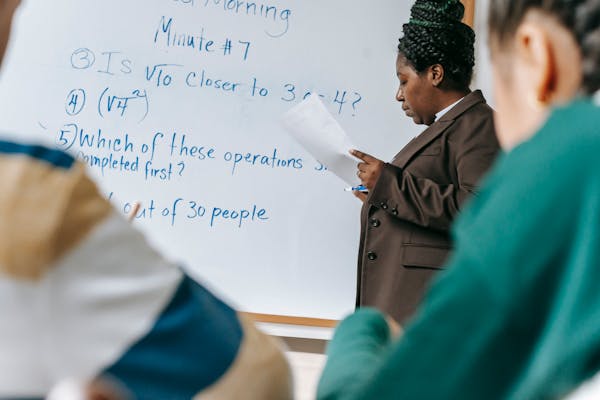 Morning
Minute #7
③ Is √10 closer to 3 or 4?
④ (√4²)
5) Which of these operations
completed first?
out of 30 people